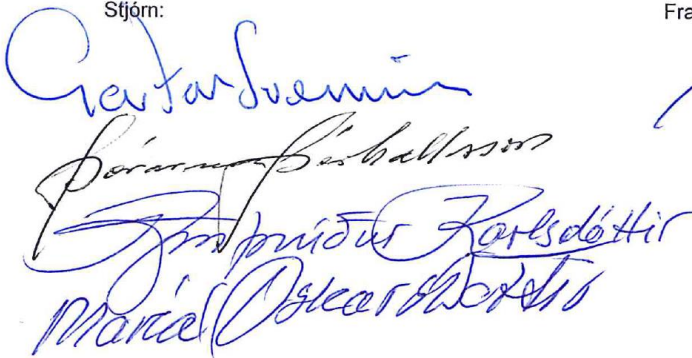 Stjórn: Fra
Garðar Svavarsson
Þórarinn Þórhallsson
Arnþrúður Karlsdóttir
María Óskarsdóttir